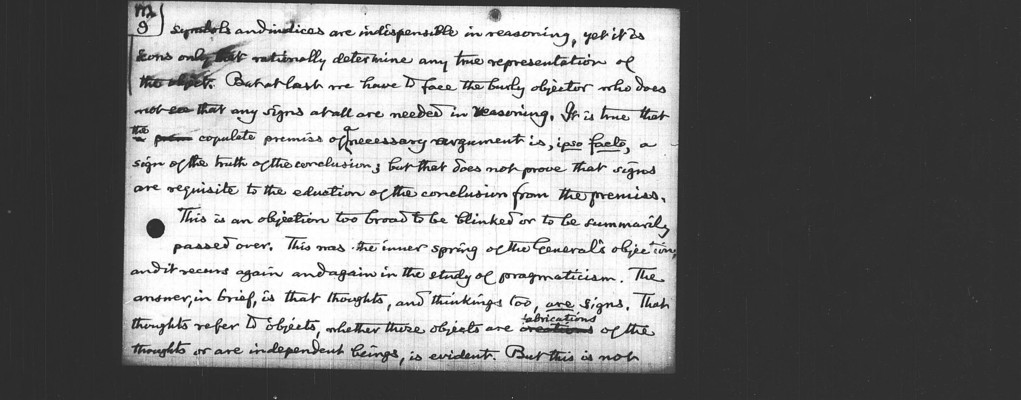 M
9
symbols and indices are indispensible in reasoning, yet it is
icons only that rationally determine any true representation of
the object. But at last we have to face the burly objector who does
not see that any signs at all are needed in reasoning. It is true that
the copulate premiss of a necessary argument is, ipso facto, a
sign of the truth of the conclusion; but that does not prove that signs
are requisite to the eduction of the conclusion from the premiss.
This is an objection too broad to be blinked or to be summarily
passed over. This was the inner spring of the General's objection;
and it recurs again and again in the study of pragmaticism. The
answer, in brief, is that thoughts, and thinkings too, are signs. That
thoughts refer to objects, whether those objects are creations fabrications of the
thoughts or are independent beings, is evident. But this is not